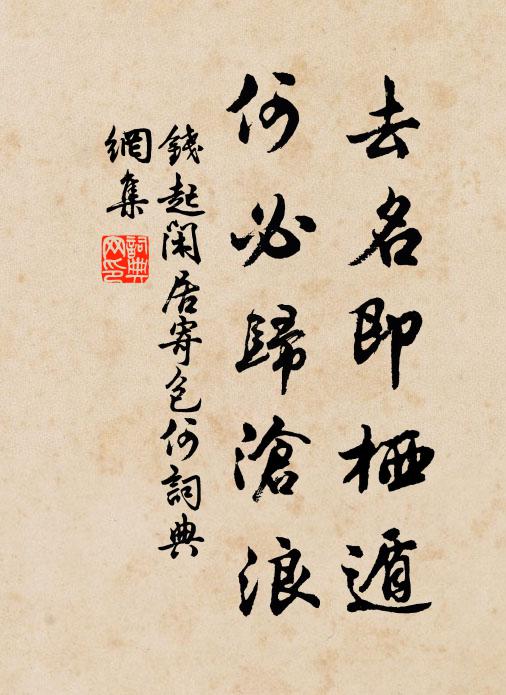 去名即栖遁
何必歸滄浪
錢起閑居寄包何詞典
網集
詞典
网印